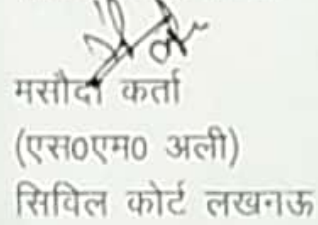 मसौदा कर्ता
(एस0एम0 अली)
सिविल कोर्ट लखनऊ